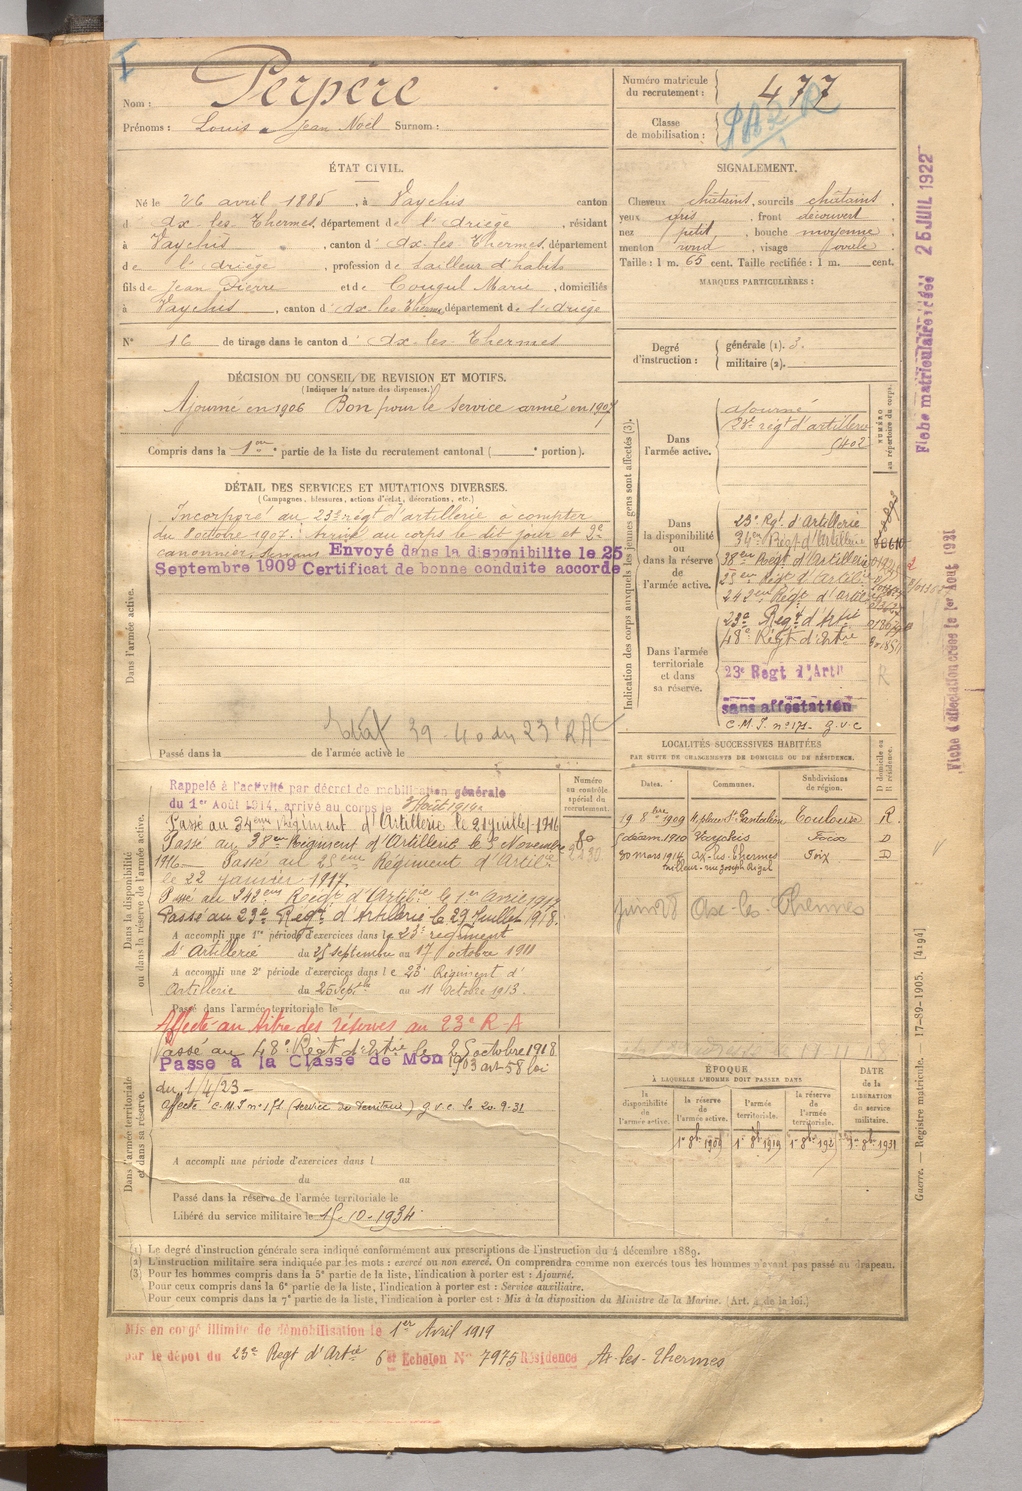 I
Nom : Perpère
Prénoms : Louis Jean Noël Surnom :
Numéro matricule du recrutement : 477
Classe de mobilisation :
ÉTAT CIVIL.
Né le 26 avril 1885, à Vaychis canton
d' Ax les Thermes, département de l'Ariège, résidant
à Vaychis, canton d' Ax-les-Thermes, département
de l'Ariège, profession de tailleur d'habits
fils de Jean Pierre et de Cougul Marie, domiciliés
à Vaychis, canton d' Ax-les-Thermes, département de l'Ariège
N° 16 de tirage dans le canton d' Ax-les-Thermes
SIGNALEMENT.
Cheveux châtains, sourcils châtains,
yeux gris, front découvert,
nez petit, bouche moyenne,
menton rond, visage ovale
Taille : 1 m. 65 cent. Taille rectifiée : 1 m. cent.
MARQUES PARTICULIÈRES :
Degré d'instruction : générale (1). 3.
militaire (2).
DÉCISION DU CONSEIL DE REVISION ET MOTIFS.
(Indiquer la nature des dispenses.)
Ajourné en 1906 Bon pour le service armé en 1907
Compris dans la 1ère partie de la liste du recrutement cantonal ( ° portion).
DÉTAIL DES SERVICES ET MUTATIONS DIVERSES.
(Campagnes, blessures, actions d'éclat, décorations, etc.)
Dans l'armée active.
Incorporé au 23e régt d'artillerie à compter
du 8 octobre 1907. Arrivé au corps le dit jour et 2e
canonnier servant Envoyé dans la disponibilite le 25
Septembre 1909 Certificat de bonne conduite accorde
39-40 du 23e RA
Passé dans la de l'armée active le
Indication des corps auxquels les jeunes gens sont affectés (3).
NUMÉRO au répertoire du corps.
Dans l'armée active.
Ajourné
23e régt d'artillerie
Dans la disponibilité ou dans la réserve de l'armée active.
23e Rgt. d'Artillerie
34e Régt d'Artillerie
38em Régt d'Artillerie
25em Régt d'Artie
242em Régt d'Artie
23e Regt d'Artie
48e Régt d'Artie
Dans l'armée territoriale et dans sa réserve.
23e Regt d'Artie
R
sans affectation
C.M.T. n° 171 g.v.c
LOCALITÉS SUCCESSIVES HABITÉES
PAR SUITE DE CHANGEMENTS DE DOMICILE OU DE RÉSIDENCE.
Dates. Communes. Subdivisions de région. D domicile ou R résidence.
19 8bre 1909 place St Pantaléon Toulouse R.
5 décem. 1910 Vaychis Foix D
30 mars 1914 Ax-les-Thermes Foix D
tailleur rue Joseph Rigal
juin 28 Ax-les-Thermes
Dans la disponibilité ou dans la réserve de l'armée active.
Numéro au contrôle spécial du recrutement.
Rappelé à l'activité par décret de mobilisation générale
du 1er Août 1914, arrivé au corps le 3 Août 1914
Passé au 34eme Régiment d'Artillerie le 21 juillet 1916
Passé au 38eme Régiment d'Artillerie le 5 Novembre
1916 Passé au 25eme Régiment d'Artie
le 22 janvier 1917.
Passé au 242eme Régt d'Artie le 1er Avril 1917
Passé au 23e Regt d'Artillerie le 29 Juillet 1918.
A accompli une 1re période d'exercices dans le 23e régiment
d'Artillerie du 25 septembre au 17 octobre 1911
A accompli une 2e période d'exercices dans le 23e Régiment d'
Artillerie du 25 septbre au 11 Octobre 1913.
Passé dans l'armée territoriale le
Affecté au titre des réserves au 23e R.A
Dans l'armée territoriale et dans sa réserve.
Passé au 48e Régt d'Artie le 25 octobre 1918
Passe à la Classe de Mon 1903 art 58 loi
du 1/4/23
Affecté C.M.T n° 171 (service du territoire) g.v.c. le 20.9.31
A accompli une période d'exercices dans l
du au
Passé dans la réserve de l'armée territoriale le
Libéré du service militaire le 15-10-1934
ÉPOQUE
À LAQUELLE L'HOMME DOIT PASSER DANS
la disponibilité de l'armée active.
la réserve de l'armée active.
l'armée territoriale.
la réserve de l'armée territoriale.
DATE de la LIBÉRATION du service militaire.
1er 8bre 1909 1er 8bre 1919 1er 8bre 192 1er 8bre 1931
(1) Le degré d'instruction générale sera indiqué conformément aux prescriptions de l'instruction du 4 décembre 1889.
(2) L'instruction militaire sera indiquée par les mots : exercé ou non exercé. On comprendra comme non exercés tous les hommes n'ayant pas passé au drapeau.
(3) Pour les hommes compris dans la 5e partie de la liste, l'indication à porter est : Ajourné.
Pour ceux compris dans la 6e partie de la liste, l'indication à porter est : Service auxiliaire.
Pour ceux compris dans la 7e partie de la liste, l'indication à porter est : Mis à la disposition du Ministre de la Marine. (Art. 4 de la loi.)
Mis en congé illimité de démobilisation le 1er Avril 1919
par le dépôt du 23e Regt d'Artie 6e Echelon N° 7975 Résidence Ax-les-Thermes
Fiche matriculaire créée 25 JUIL 1922
Fiche d'affectation créée le 1er Aout 1931
Guerre. — Registre matricule. — 17-89-1905. [4194]